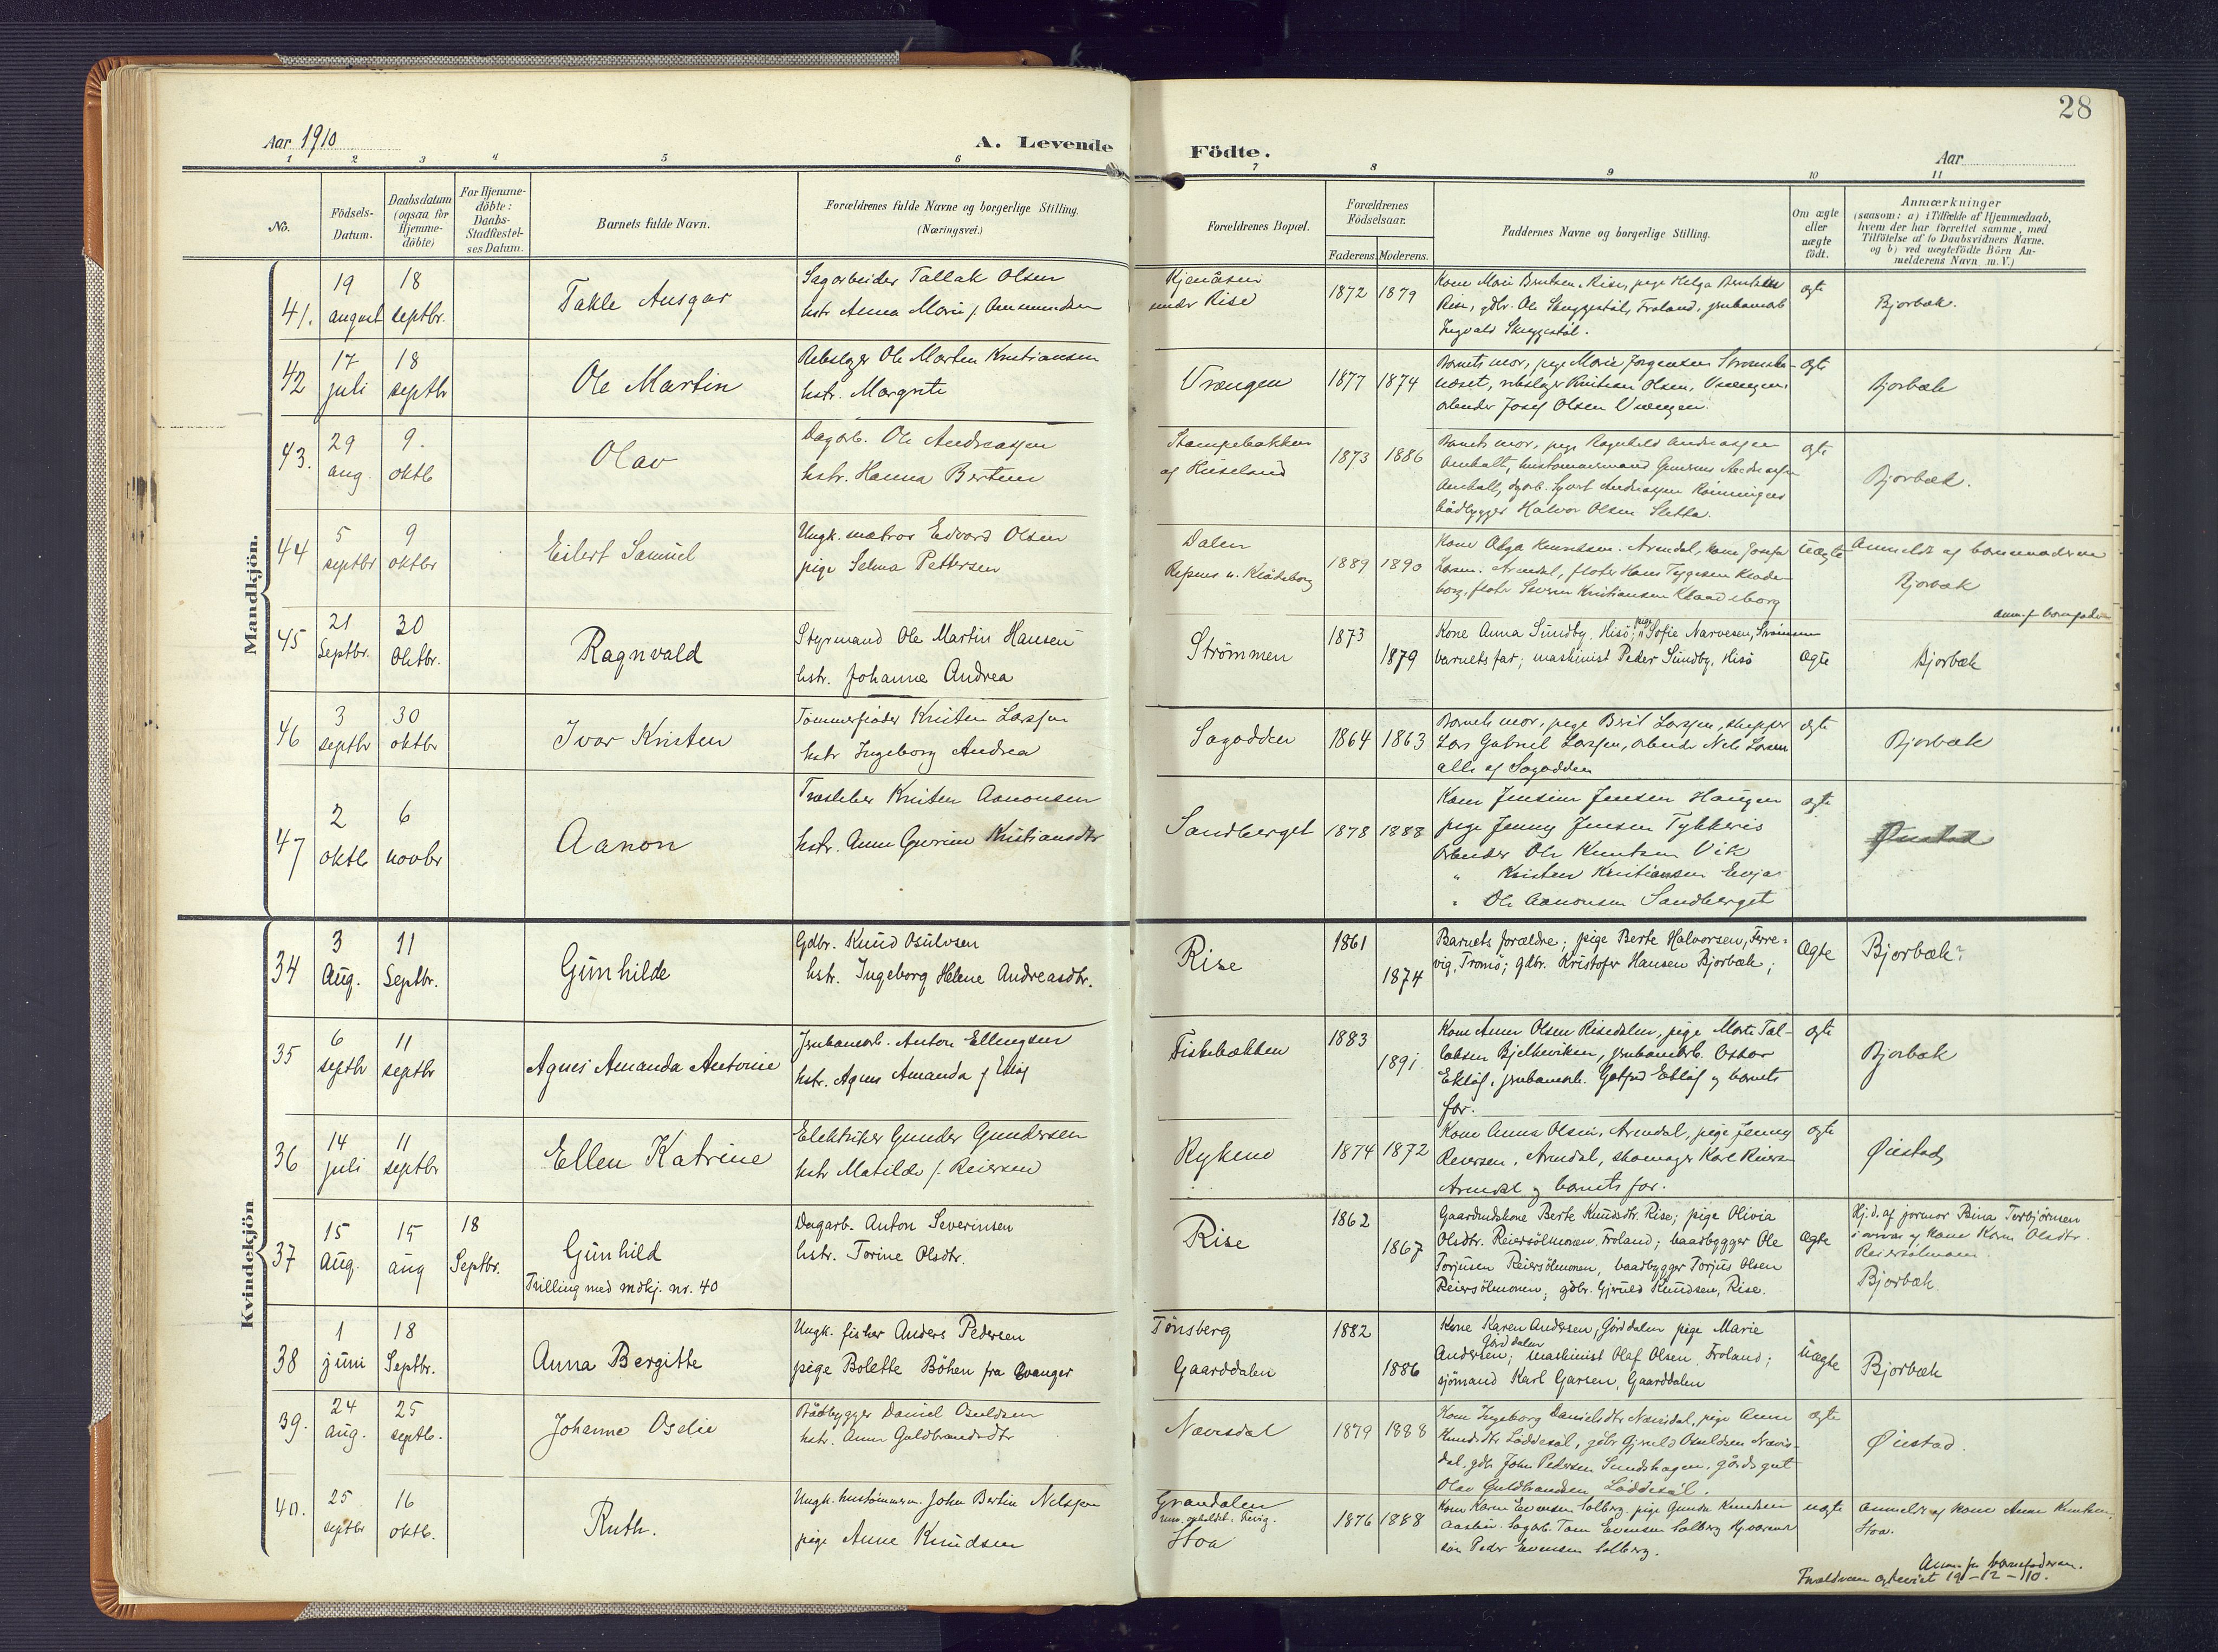 28
Aar 1910
A. Levende Födte.
Aar
1 2 3 4 5 6 7 8 9 10 11
No.
Födsels-Datum.
Daabsdatum (ogsaa for Hjemme-döbte)
For Hjemme-döbte: Daabs-Stadfæstel-ses Datum.
Barnets fulde Navn.
Forældrenes fulde Navne og borgerlige Stilling. (Næringsvei.)
Forældrenes Bopæl.
Forældrenes Födselsaar.
Faderens. Moderens.
Faddernes Navne og borgerlige Stilling.
Om ægte eller uægte födt.
Anmærkninger
(saasom: a) i Tilfælde af Hjemmedaab, hvem der har forrettet samme, med Tilföielse af to Daabsvidners Navne, og b) ved uægtefödte Börn An-melderens Navn m. V.)
Mandkjön.
41. 19 august 18 septbr. Takle Ansgar
Sagarbeider Tallak Olsen
hstr Anna Marie f. Amundsen
under Rise
1872 1879
Rise, gdbr. Ole Skuggestøl, Froland, jrnbanearb
Ingvald Skuggestøl.
ægte
Bjorbæk.
42 17 juli 18 septbr Ole Martin
Rebslager Ole Morten Kristiansen
hstr. Margrete
Vrængen
1877 1874
Barnets mor, pige Marie Jorgensen
rebslager Kristian Olsen, Vrængen,
arbeider Josef Olsen Vrængen.
ægte
Bjorbæk
43. 29 aug. 9. oktb Olav
Dagarb. Ole Andreassen
hstr. Hanna Bertine
Stampebakken
af Huseland
1873 1886
Barnets mor, pige Ragnhild Andreassen
bådbygger Halvor Olsen Sletta.
ægte
Bjorbæk.
44 5 septbr 9 oktbr Eilert Samuel
Ungk. matros Edvard Olsen
pige Selma Pettersen
Dalen
1889 1890
Kone Olga Knudsen. Arendal, kone Josefa
Larsen. Arendal, fløter Hans Tygesen
fløter Severin Kristiansen Klaadeborg
uægte
Anmeldt af barnemoderen
Bjorbæk
anm. f. barnefaderen
45 21 Septbr. 30 Oktbr. Ragnvald
Styrmand Ole Martin Hansen
hstr. Johanne Andrea
Strömmen
1873 1879
Kone Anna Sundby. Hisö; pige Sofie Narvesen, Strömmen
barnets far; maskinist Peder Sundby, Hisö
Ægte
Bjorbæk
46 3 septbr 30 oktbr Ivar Kristen
Tømmerfløder Kristen Larssen
hstr Ingeborg Andrea
Sagodden
1864 1863
Barnets mor, pige Berit Larssen, skipper
Lars Gabriel Larssen, arbeider Nels Larsen
alle af Sagodden
ægte
Bjorbæk
47 2 oktb 6 novbr Aanon
Træsleber Kristen Aanonsen
hstr. Anne Gurine Kristiansdtr
Sandberget
1878 1888
Kone Jensine Jensen Haugen
pige Jenny Jensen Tykkeris
arbeider Ole Knutsen Vik
" Kristen Kristiansen
" Ole Aanonsen Sandberget
ægte
Øiestad
Kvindekjön
34 3 Aug. 11 Septbr. Gunhilde
Gdbr. Knud Osulvsen
hstr. Ingeborg Helene Andreasdtr.
Rise
1861 1874
Barnets forældre; pige Berte Halvorsen, Fære-
vig, Tromö; gdbr. Kristofer Hansen Bjorbæk;
Ægte
Bjorbæk?
35 6 septbr 11 septbr Agnes Amanda Antonie
Jrnbanearb. Anton Ellingsen
hstr. Agnes Amanda f
Fiskebækken
1883 1891
Kone Anna Olsen Risedalen, pige Marte Tal-
laksen Bjelkeviken, jrnbanearb. Oskar
Ekløf, jrnbanearb. Gotfred Ekløf og barnets
far.
ægte
Bjorbæk
36 14 juli 11 septbr Ellen Katrine
Elektriker Gunder Gundersen
hstr Matilde f. Reiersen
Rykene
1874 1872
Kone Anna Olsen, Arendal, pige Jenny
Reiersen, Arendal, skomager Karl Reiersen
Arendal og barnets far.
ægte
Øiestad
37 15 Aug. 15 aug 18 Septbr. Gunhild
Trilling med mdkj. nr. 40
Dagarb. Anton Severinsen
hstr. Torine Olsdtr.
Rise
1862 1867
Gaardmdskone Berte Knudsdtr. Rise; pige Olivia
Olsdtr. Reiersölmonen, Froland; baadbygger Ole
Torjusen Reiersölmonen, baadbygger Torjus Olsen
Reiersölmonen; gdbr. Gjeruld Knudsen, Rise.
Ægte
Hj.d. af jormor Bina Terbjörnsen
i nærvær af kone Karen Olsdtr.
Reiersölmonen
Bjorbæk
38 1 juni 18 Septbr. Anna Bergitte
Ungk. fisker Anders Pedersen
pige Bolette Böhen fra Evanger
Tönsberg
Gaarddalen
1882 1886
Kone Karen Andersen, Görddalen pige Marie
Andersen, Görddalen; maskinist Olaf Olsen Froland;
sjömand Karl Garsen, Gaarddalen
Uægte
Bjorbæk
39. 24 aug. 25 septb. Johanne Oselie
Bådbygger Daniel Osuldsen
hstr. Anne Guldbrandsdtr
Nævisdal
1879 1888
Kone Ingeborg Danielsdtr Nævisdal, pige Anne
Knudsdtr Løddesøl, gdbr Gjeruld Osuldsen Nævis-
dal, gdbr John Pedersen Sundshagen, gårdsgut
Olav Guldbrandsen Løddesøl.
ægte
Øiestad.
40. 25 septbr 16 oktb. Ruth.
Ungk. hustømmerm. John Bertin Nelssen
pige Anne Knudsen
Grandalen
Stoa
1876 1888
Kone Karen Evensen Solberg, pige Gunda Knudsen
Sagarb. Tom Evensen Solberg
Peder Evensen Solberg.
uægte
anmeldt af kone Anne Knudsen,
Stoa.
Anm. for barnefaderen.
Forældrene ægteviet 19-12-10.